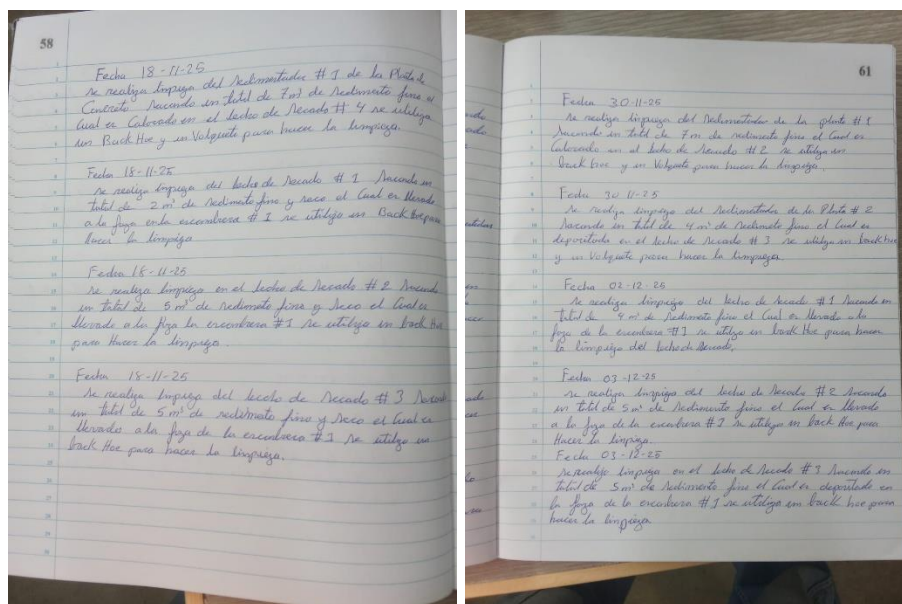 58
Fecha 18-11-25
se realiza limpieza del sedimentador # 1 de la Planta de
Concreto sacando un total de 7 m³ de sedimento fino el
Cual es Colocado en el lecho de secado # 4 se utiliza
un Back Hoe y un Volquete para hacer la limpieza.
Fecha 18-11-25
se realiza limpieza del lecho de secado # 1 sacando un
total de 2 m³ de sedimento fino y seco el Cual es llevado
a la foza en la escombrera # 1 se utilizo un Back Hoe para
Hacer la limpieza
Fecha 18-11-25
se realiza limpieza en el lecho de secado # 2 sacando
un total de 5 m³ de sedimento fino y seco el Cual es
llevado a la foza la escombrera # 1 se utilizo un back Hoe
para Hacer la limpieza.
Fecha 18-11-25
se realiza limpieza del lecho de secado # 3 sacando
un total de 5 m³ de sedimento fino y seco el Cual es
llevado a la foza de la escombrera # 1 se utilizo un
back Hoe para hacer la limpieza.
61
Fecha 30-11-25
se realiza limpieza del sedimentador de la planta # 1
sacando un total de 7 m de sedimento fino el Cual es
Colocado en el lecho de secado # 2 se utiliza un
back hoe y un Volquete para hacer la limpieza.
Fecha 30-11-25
se realiza limpieza del sedimentador de la Planta # 2
sacando un total de 4 m³ de sedimento fino el Cual es
depositado en el lecho de secado # 3 se utilizo un back hoe
y un Volquete para hacer la limpieza
Fecha 02-12-25
se realiza limpieza del lecho de secado # 1 sacando un
total de 4 m³ de sedimento fino el Cual es llevado a la
foza de la escombrera # 1 se utilizo un back Hoe para hacer
la limpieza del lecho de secado.
Fecha 03-12-25
se realiza limpieza del lecho de secado # 2 sacando
un total de 5 m³ de sedimento fino el Cual es llevado
a la foza de la escombrera # 1 se utilizo un back Hoe para
Hacer la limpieza.
Fecha 03-12-25
se realizo limpieza en el lecho de secado # 3 sacando un
total de 5 m³ de sedimento fino el Cual es depositado en
la foza de la escombrera # 1 se utiliza un back hoe para
hacer la limpieza